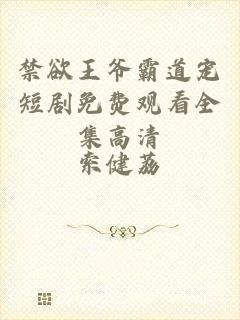 禁欲王爷霸道宠
短剧免费观看全
集高清
索健荔